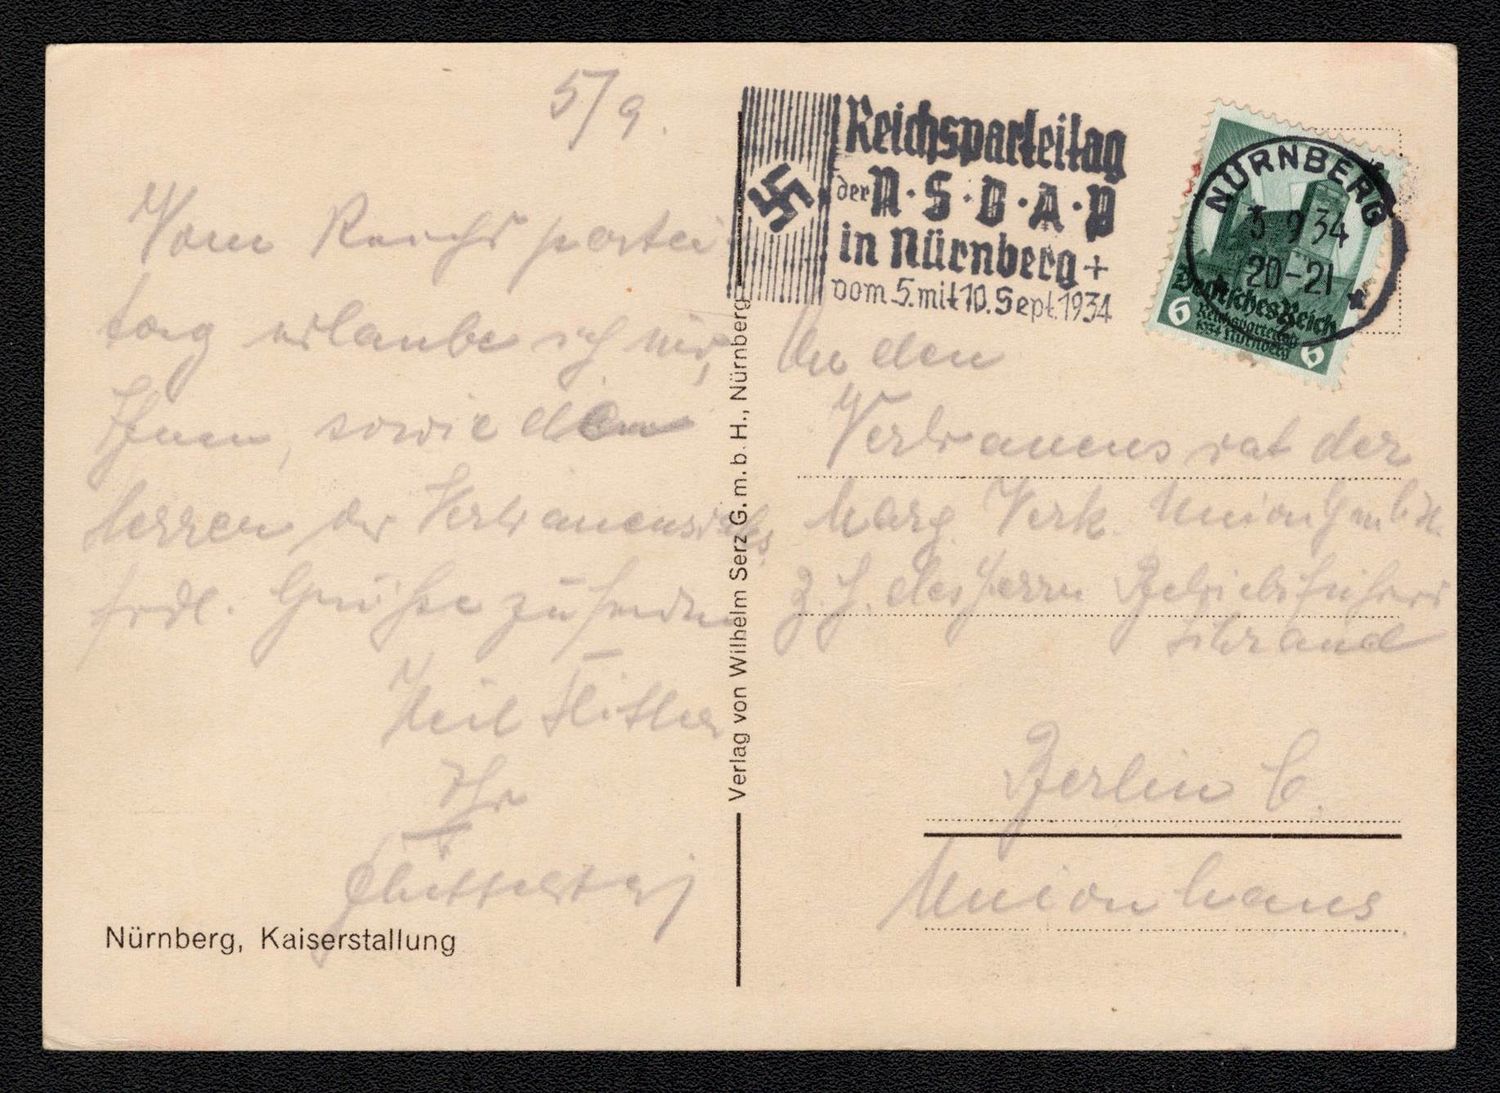 5/9.
Vom Reichspartei-
tag erlaube ich mir,
Ihnen, sowie den
Herren des Vertrauensrates
frdl. Grüße zu senden
Heil Hitler
Ihr
Nürnberg, Kaiserstallung
Verlag von Wilhelm Serz G.m.b.H., Nürnberg
Reichsparteitag
der N·S·D·A·P
in Nürnberg +
vom 5. mit 10. Sept. 1934
NÜRNBERG
3 9 34
20-21
Deutsches Reich
Reichsparteitag
1934 Nürnberg
6 6
An den
Vertrauensrat der
Marg. Verk. Union G.m.b.H.
z. H. des Herrn Betriebsführers
Berlin C.
Unionhaus